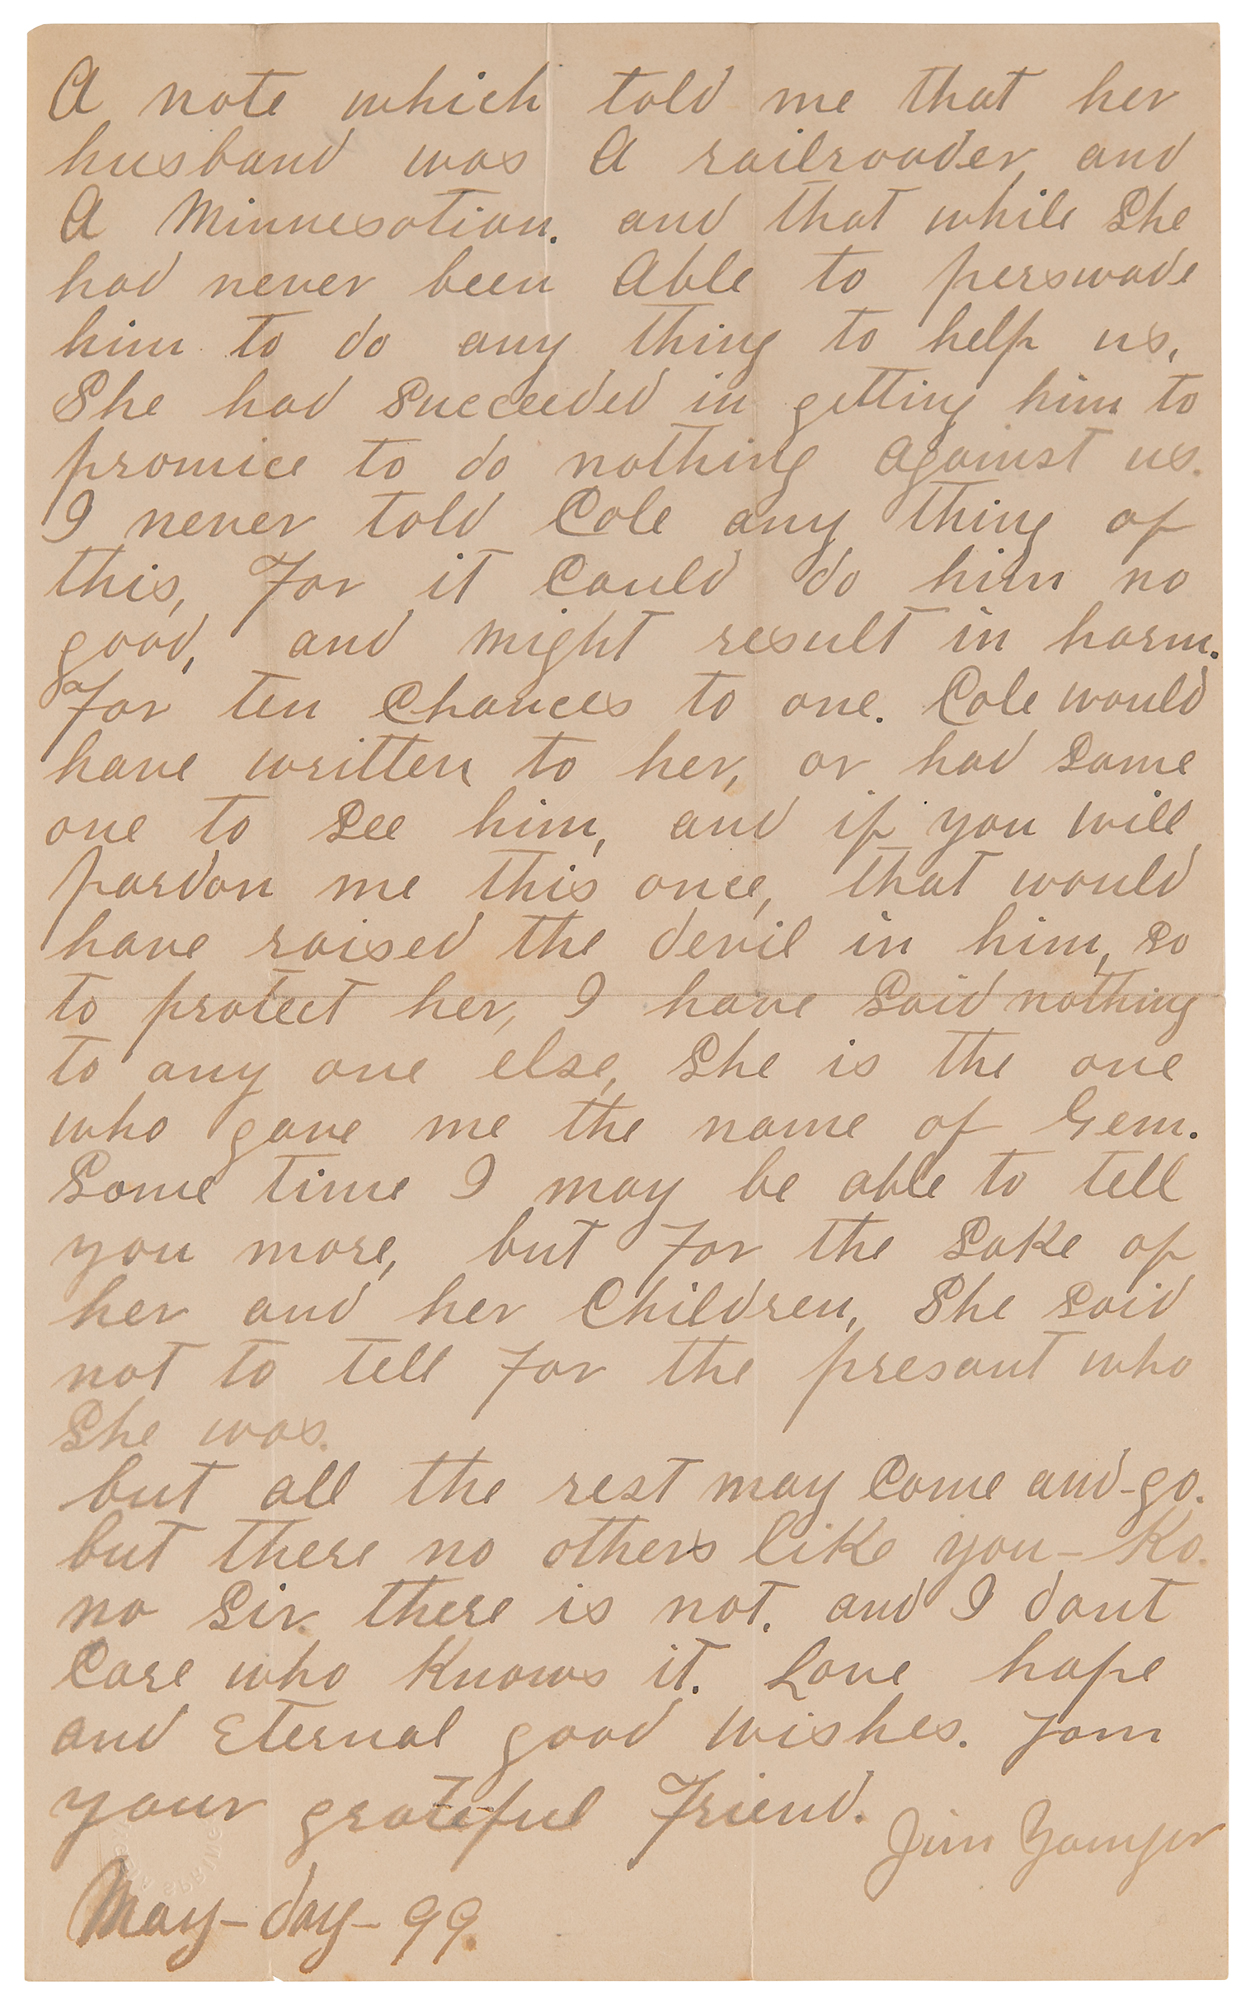 A note which told me that her
husband was A railroader and
A Minnesotian. and that while She
had never been Able to perswade
him to do any thing to help us,
She had Succeeded in getting him to
promice to do nothing Against us.
I never told Cole any thing of
this, For it Could do him no
good, and might result in harm.
For ten Chances to one. Cole would
have written to her, or had Some
one to See him, and if you will
pardon me this once, that would
have raised the devil in him, So
to protect her, I have Said nothing
to any one else, She is the one
who gave me the name of Gem.
Some time I may be able to tell
you more, but For the Sake of
her and her Children, She Said
not to tell For the presant who
She was.
but all the rest may Come and-go.
but there no others like you - Ko.
no Sir there is not. and I dont
Care who Knows it. Love hope
and Eternal good wishes. From
your grateful Friend.
Jim Younger
May-day-99.